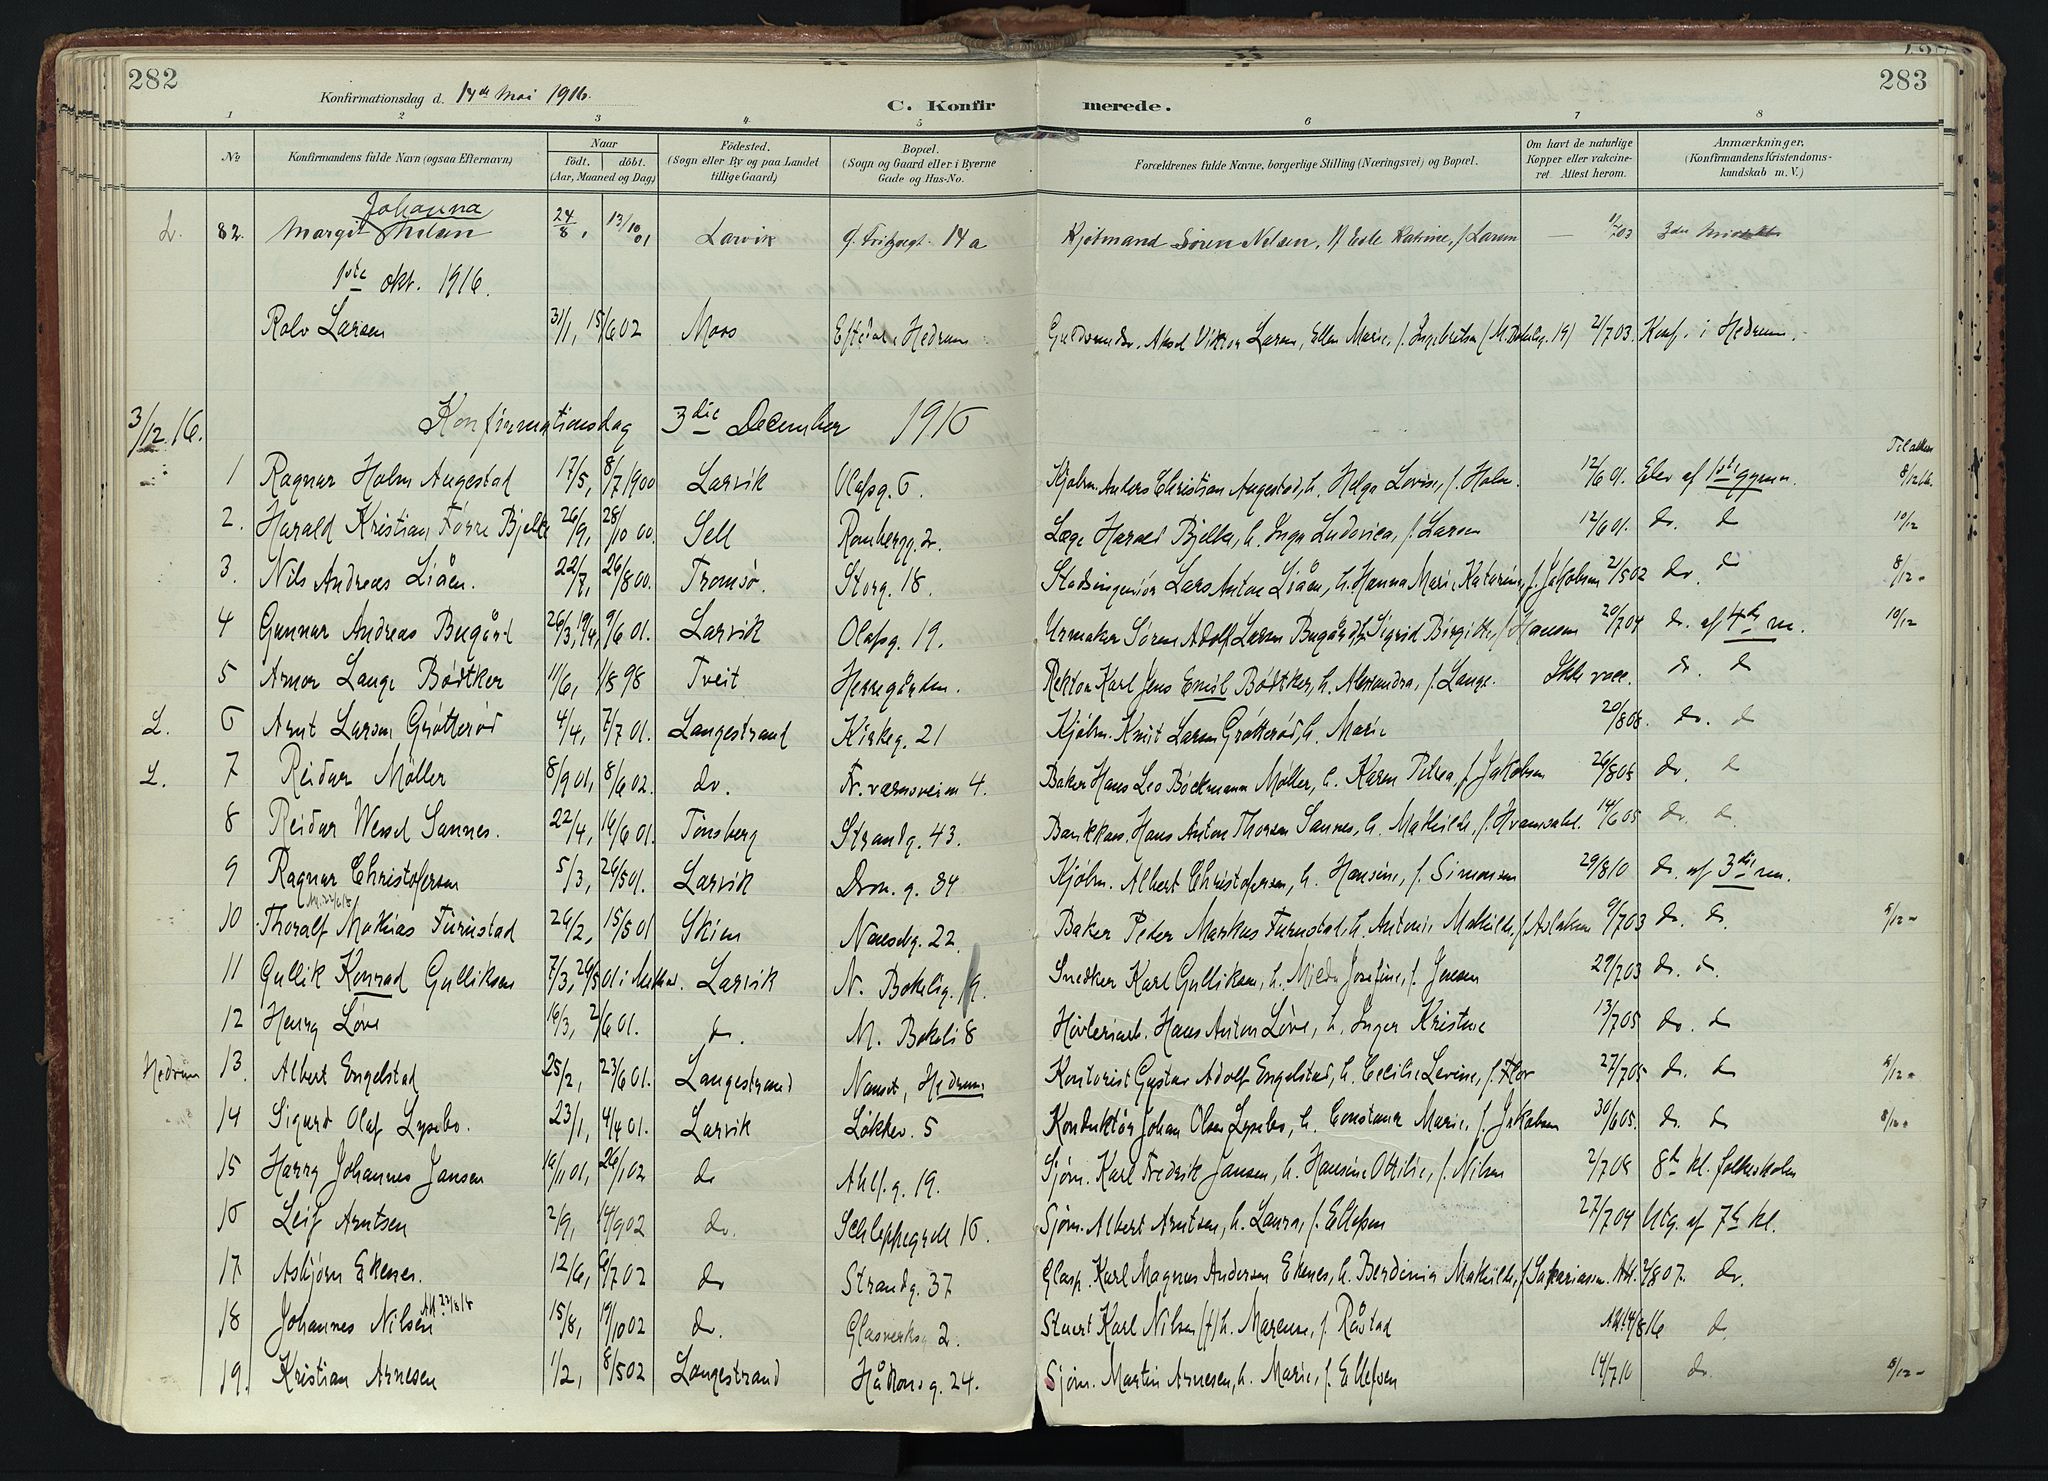 282
283
Konfirmationsdag d. 14de Mai 1916.
C. Konfir merede.
1 2 3 4. 5 6 7 8
No.
Konfirmandens fulde Navn (ogsaa Efternavn)
Naar
födt. döbt.
(Aar, Maaned og Dag)
Födested.
(Sogn eller By og paa Landet
tillige Gaard)
Bopæl.
(Sogn og Gaard eller i Byerne
Gade og Hus-No.
Forældrenes fulde Navne, borgerlige Stilling (Næringsvei) og Bopæl.
Om havt de naturlige
Kopper eller vakcine-
ret. Attest herom.
Anmærkninger.
(Konfirmandens Kristendoms-
kundskab m. V.)
Johanna
L. 82. Margit Nilsen 24/8, 13/10 01 Larvik 14a Kjøbmand Søren Nilsen, Katrine, f. Larsen — 03
1ste Okt. 1916.
Rolv Larsen 31/1, 15/6 02 Moss Eftedal, Hedrum Aksel Viktor Larsen, Ellen Marie, f. Ingebretsen 2/7 03. Konf. i Hedrum.
3/12.16. Konfirmationsdag 3die December 1916
1 Ragnar Holm Augestad 17/5, 8/7 1900 Larvik Olafsg. 6. Kjøbm. Anders Christian Augestad, h. Helga Lovise, f. Holm. 12/6 01. Elev af 1ste gymn. 8/12 16.
2. Harald Kristian Førre Bjelke 26/9, 28/10 00. Sell Rombergg. 2. Læge Harald Bjelke, h. Inga Ludovica, f. Larsen 12/6 01. do. do 10/12
3. Nils Andreas Liåen. 22/7, 26/8 00. Tromsø. Storg. 18. Stadsingeniør Lars Anton Liåen, h. Hanna Marie Katarine, f. Jakobsen 2/5 02 do. do 8/12 -
4 Gunnar Andreas Bugård 26/3, 9/6 01. Larvik Olafsg. 19. Urmaker Søren Adolf Larsen Bugård, h. Sigrid Birgitte, f. Hansen 20/7 04 do. af 4de m. 10/12
5 Arnor Lange Bødtker 11/6, 1/8 98 Tveit Herregården. Rektor Karl Jens Emil Bødtker, h. Alexandra, f. Lange. Ikke vacc. do. do
L. 6 Arnt Larsen Grøtterød 4/4, 7/7 01. Langestrand Kirkeg. 21 Kjøbm. Knut Larsen Grøtterød, h. Marie 20/8 08. do. do
L. 7 Reidar Møller 8/9 01, 8/6 02. do. Fr. værnsveien 4. Baker Hans Leo Böckmann Møller, h. Karen Petrea, f. Jakobsen 26/8 05 do. do
8 Reidar Wessel Sannes. 22/4, 16/6 01. Tønsberg Strandg. 43. Bankkass. Hans Anton Thorsen Sannes, h. Mathilde, f. 14/6 05 do. do.
9 Ragnar Christofersen 5/3, 26/5 01. Larvik Dron. g. 34 Kjøbm. Albert Christofersen, h. Hansine, f. Simonsen 29/8 10 do. af 3die m.
10 Thoralf Mathias Furustad 26/2, 15/5 01 Skien Nansetg. 22 Baker Peder Markus Furustad, h. Antonie Mathilde, f. Aslaksen 9/7 03 do. do. 9/12 -
11 Gullik Konrad Gulliksen 7/3, 26/5 01 i Larvik N. Bøkelig. 19. Snedker Karl Gulliksen, h. Milda Josefine, f. Jensen 29/7 03 do. do.
12 Henry Løve 16/3, 2/6 01. do. M. Bøkeli 8 Høvleriarb. Hans Anton Løve, h. Inger Kristine 13/7 05 do. do
Hedrum 13. Albert Engelstad 25/2, 23/6 01. Langestrand Nanset, Hedrum Kontorist Gustav Adolf Engelstad, h. Cecilie Levine, f. Flor 27/7 05 do. do 9/12 -
14 Sigurd Olaf Lysebo. 23/1, 4/4 01. Larvik Løkkev. 5 Konduktør Johan Olsen Lysebo, h. Constance Marie, f. Jakobsen 30/6 05. do. do 8/12 -
15 Harry Johannes Jansen 19/11 01, 26/1 02 do Ahlf. g. 19. Sjøm. Karl Fredrik Jansen, h. Hansine Ottilie, f. Nilsen 2/7 08 8de kl. folkeskolen
16 Leif Arntsen 2/9, 14/9 02 do. Schleppegrells 16. Sjøm. Albert Arntsen, h. Laura, f. Ellefsen 27/7 04 Utg. af 7de kl.
17 Asbjørn Ekenes. 12/6, 6/7 02 do Strandg. 37 Glasp. Karl Magnus Andersen Ekenes, h. Berdinia Mathilde, f. Sakariasen. Att. 2/8 07. do.
18 Johannes Nilsen 15/8, 19/10 02 do. Glasverksg 2. Stuert Karl Nilsen (f) h. Marense, f. Råstad Att. 14/8 16 do.
19. Kristian Arnesen 1/2, 8/5 02 Langestrand Håkonsg. 24. Sjøm. Martin Arnesen, h. Marie, f. Ellefsen 14/7 10 do. 8/12 -